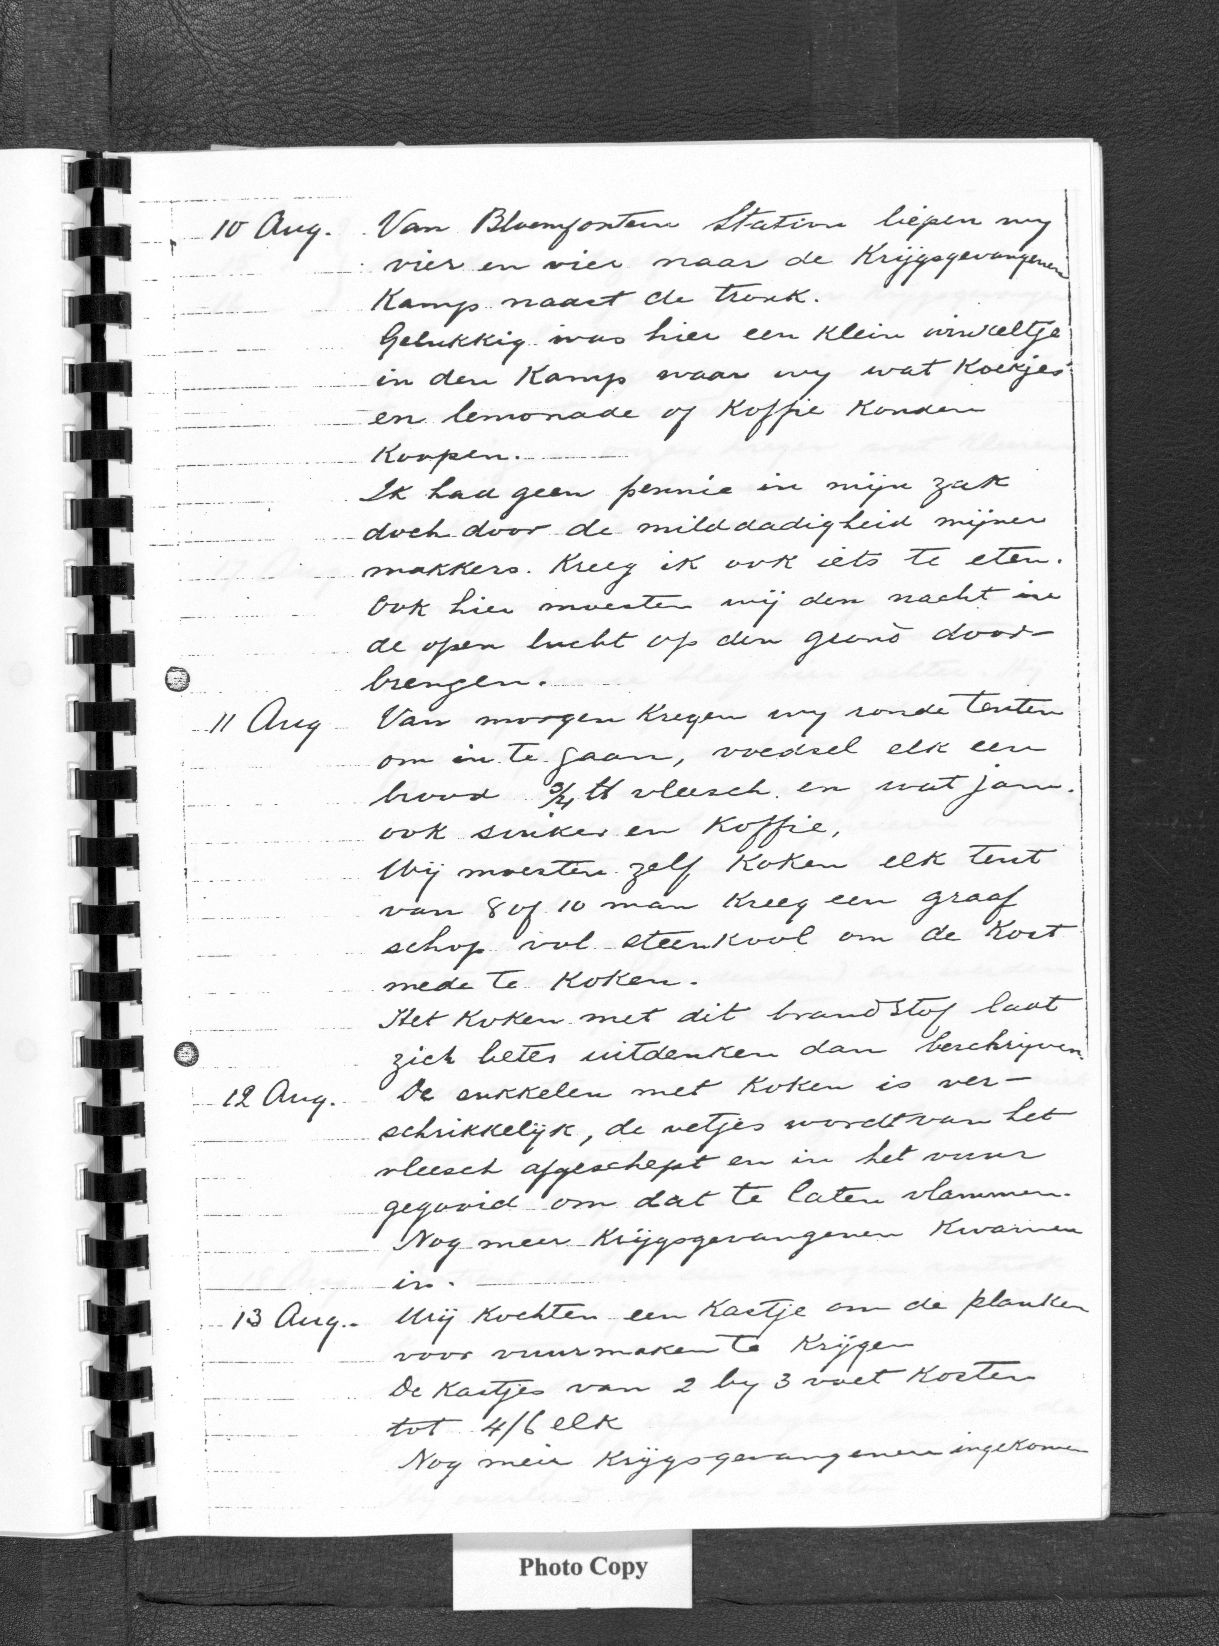 10 Aug. Van Bloemfontein Station liepen wy
vier en vier naar de Krijgsgevangenen
Kamp naast de tronk.
Gelukkig was hier een klein winkeltje
in den Kamp waar wy wat Koekjes
en lemonade of Koffie Konden
Koopen.
Ik had geen pennie in mijn zak
doch door de milddadigheid mijner
makkers. Kreeg ik ook iets te eten.
Ook hier moesten wij den nacht in
de open lucht op den grond door-
brengen.
11 Aug Van morgen Kregen wy ronde tenten
om in te gaan, voedsel elk een
brood 3/4 lb vleesch en wat jam.
ook suiker en Koffie,
Wij moesten zelf Koken elk tent
van 8 of 10 man Kreeg een graaf
schop vol steenkool om de Kost
mede te Koken.
Het Koken met dit brandstof laat
zich beter uitdenken dan beschrijven.
12 Aug. De sukkelen met Koken is ver-
schrikkelijk, de vetjes wordt van het
vleesch afgeschept en in het vuur
gegooid om dat te laten vlammen.
Nog meer Krijgsgevangenen Kwamen
in.
13 Aug. Wij Kochten een Kastje om de planken
voor vuurmaken te Krijgen
De Kastjes van 2 by 3 voet Kosten
tot 4/6 elk
Nog meer Krijgsgevangenen ingekomen
Photo Copy